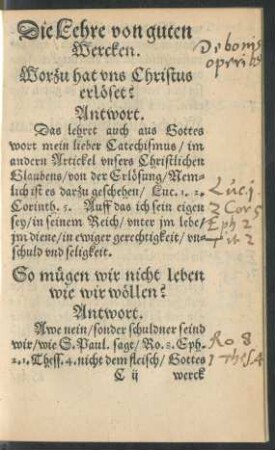 Die Lehre von guten
Wercken.
De bonis
operib9
Worzu hat vns Christus
erlöset?
Antwort.
Das lehret auch aus Gottes
wort mein lieber Catechismus / im
andern Artickel vnsers Christlichen
Glaubens / von der Erlösung / Nem-
lich ist es darzu geschehen / Luc. 1. 2.
Corinth. 5. Auff das ich sein eigen
sey / in seinem Reich / vnter jm lebe /
jm diene / in ewiger gerechtigkeit / vn-
schuld vnd seligkeit.
Luc. j.
2 Cor 5
Eph 2
Tit 2
So mügen wir nicht leben
wie wir wöllen?
Antwort.
Awe nein / sonder schuldner seind
wir / wie S. Paul. sagt / Ro. 8. Eph.
2. 1. Thess. 4. nicht dem fleisch / Gottes
Ro 8
1 Thes 4
C ij werck